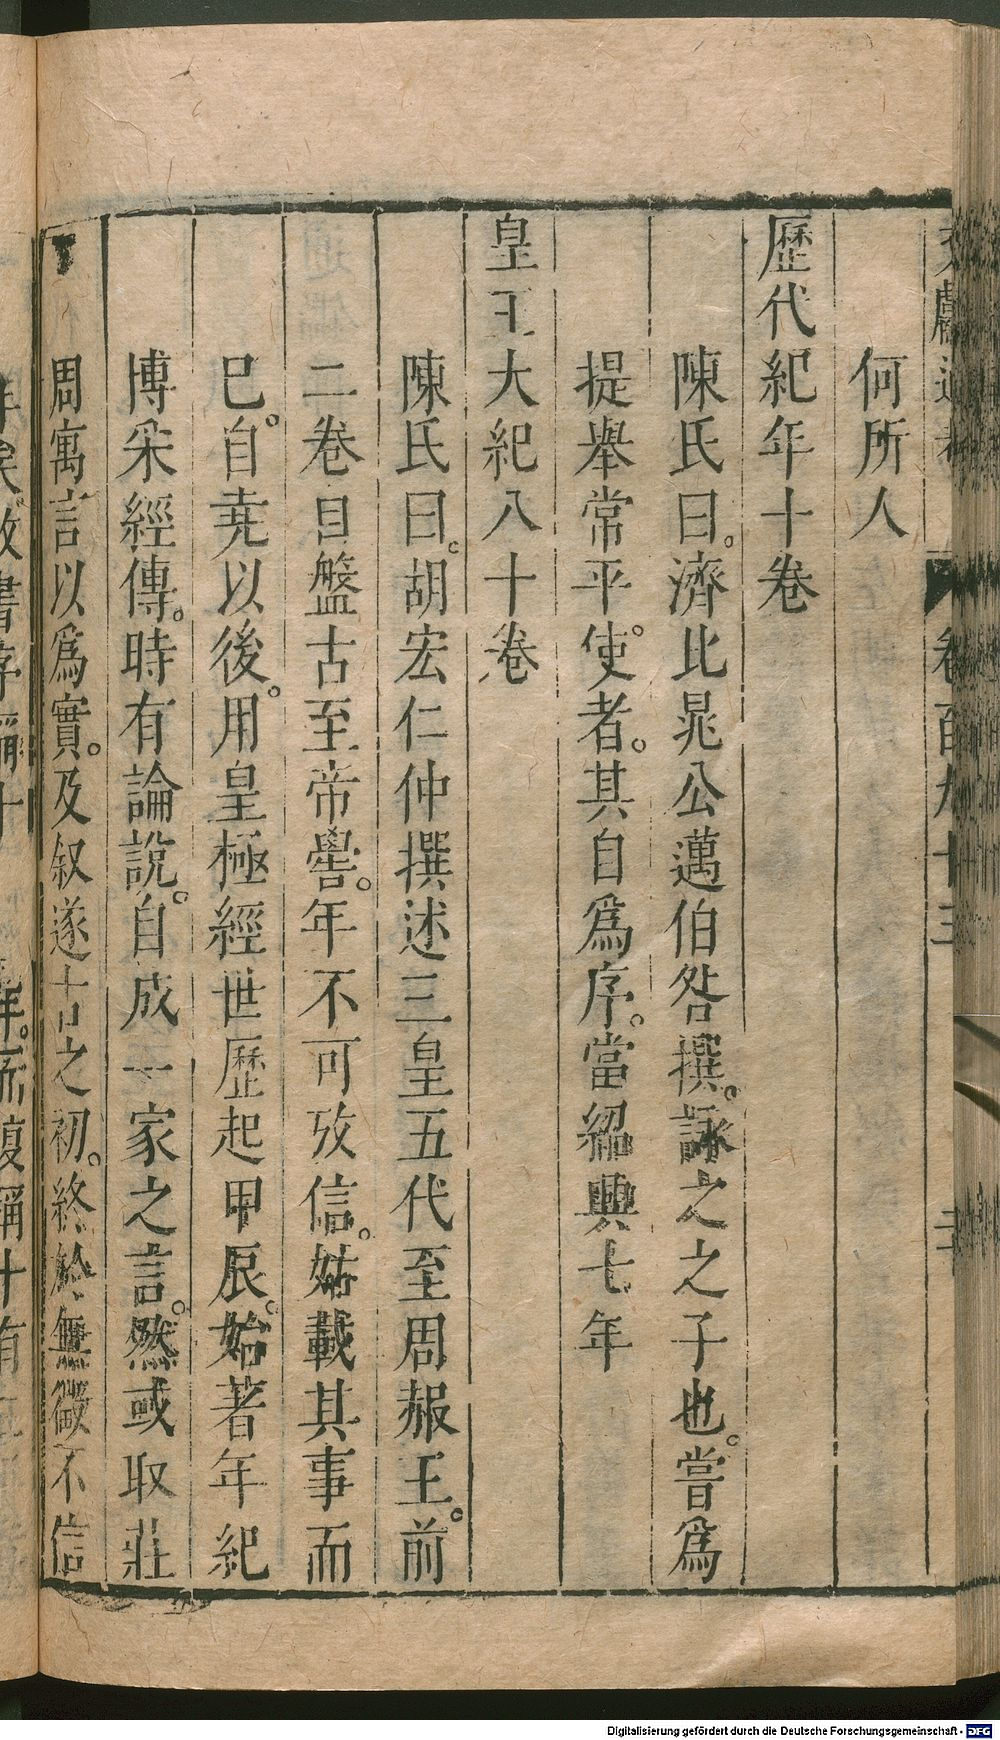 文獻通考 卷百九十三 二
何所人
歷代紀年十卷
陳氏曰。濟北晁公邁伯咎撰。詠之之子也。嘗爲
提舉常平。使者。其自爲序。當紹興七年
皇王大紀八十卷
陳氏曰。胡宏仁仲撰述三皇五代至周赧王。前
二卷自盤古至帝嚳。年不可攷信。姑載其事而
巳。自堯以後。用皇極經世歷起甲辰。始著年紀
博采經傳。時有論說。自成一家之言。然或取莊
周寓言以爲實。及叙遂古之初。終於無徵不信
Digitalisierung gefördert durch die Deutsche Forschungsgemeinschaft - DFG